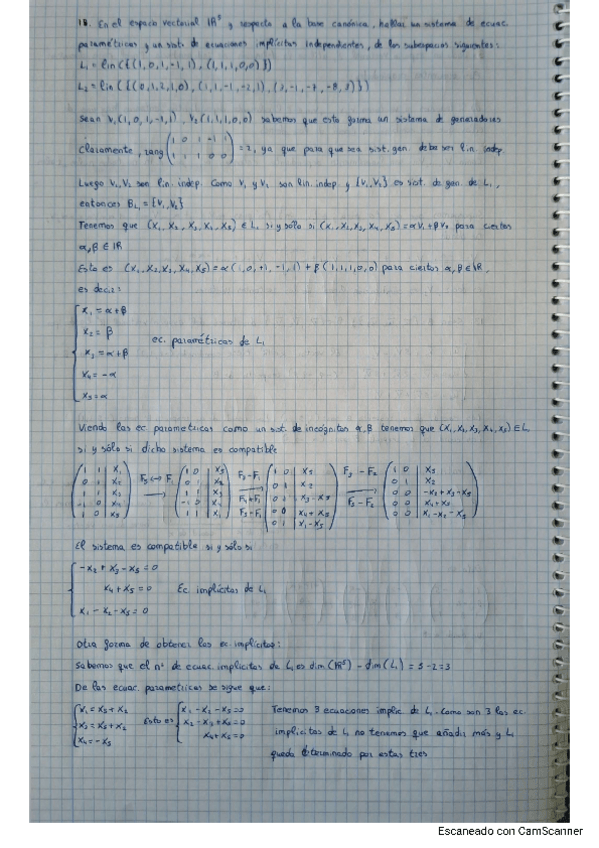 18. En el espacio vectorial IR⁵ y respecto a la base canónica, hallar un sistema de ecuac.
paramétricas y un sist. de ecuaciones implícitas independientes, de los subespacios siguientes:
L₁ = lin({(1,0,1,-1,1), (1,1,1,0,0)})
L₂ = lin({(0,1,2,1,0), (1,1,-1,-2,1), (3,-1,-7,-8,3)})
Sean V₁(1,0,1,-1,1), V₂(1,1,1,0,0) sabemos que esto forma un sistema de generadores
Claramente, rang (1 0 1 -1 1
1 1 1 0 0) = 2, ya que para que sea sist. gen. debe ser lin. indep
Luego V₁, V₂ son lin. indep. Como V₁ y V₂ son lin. indep y {V₁, V₂} es sist. de gen. de L₁,
entonces B_L₁ = {V₁, V₂}
Tenemos que (X₁, X₂, X₃, X₄, X₅) ∈ L₁ si y sólo si (X₁, X₂, X₃, X₄, X₅) = αV₁ + βV₂ para ciertos
α, β ∈ IR
Esto es (X₁, X₂, X₃, X₄, X₅) = α(1,0,+1,-1,1) + β(1,1,1,0,0) para ciertos α, β ∈ IR,
es decir:
X₁ = α + β
X₂ = β
X₃ = α + β ec. paramétricas de L₁
X₄ = -α
X₅ = α
Viendo las ec. parametricas como un sist. de incógnitas α, β tenemos que (X₁, X₂, X₃, X₄, X₅) ∈ L₁
si y sólo si dicho sistema es compatible
1 1 | X₁ F₅ ↔ F₁ 1 0 | X₅ F₃-F₁ 1 0 | X₅ F₃ - F₂ 1 0 | X₅
0 1 | X₂ 0 1 | X₂ 0 1 | X₂ 0 1 | X₂
1 1 | X₃ 1 1 | X₃ F₄+F₁ 0 1 | X₃-X₅ 0 0 | -X₂+X₃-X₅
-1 0 | X₄ -1 0 | X₄ F₅-F₁ 0 0 | X₄+X₅ F₅ - F₂ 0 0 | X₄+X₅
1 0 | X₅ 1 1 | X₁ 0 1 | X₁-X₅ 0 0 | X₁-X₂-X₅
El sistema es compatible si y sólo si
-X₂ + X₃ - X₅ = 0
X₄ + X₅ = 0 Ec implícitas de L₁
X₁ - X₂ - X₅ = 0
Otra forma de obtener las ec. implícitas:
Sabemos que el nº de ecuac. implícitas de L₁ es dim(IR⁵) - dim(L₁) = 5 - 2 = 3
De las ecuac. parametricas se sigue que:
X₁ = X₅ + X₂ X₁ - X₂ - X₅ = 0 Tenemos 3 ecuaciones implíc. de L₁. Como son 3 las ec.
X₃ = X₅ + X₂ Esto es X₂ - X₃ + X₅ = 0 implícitas de L₁ no tenemos que añadir más y L₁
X₄ = -X₅ X₄ + X₅ = 0 queda determinado por estas tres
Escaneado con CamScanner